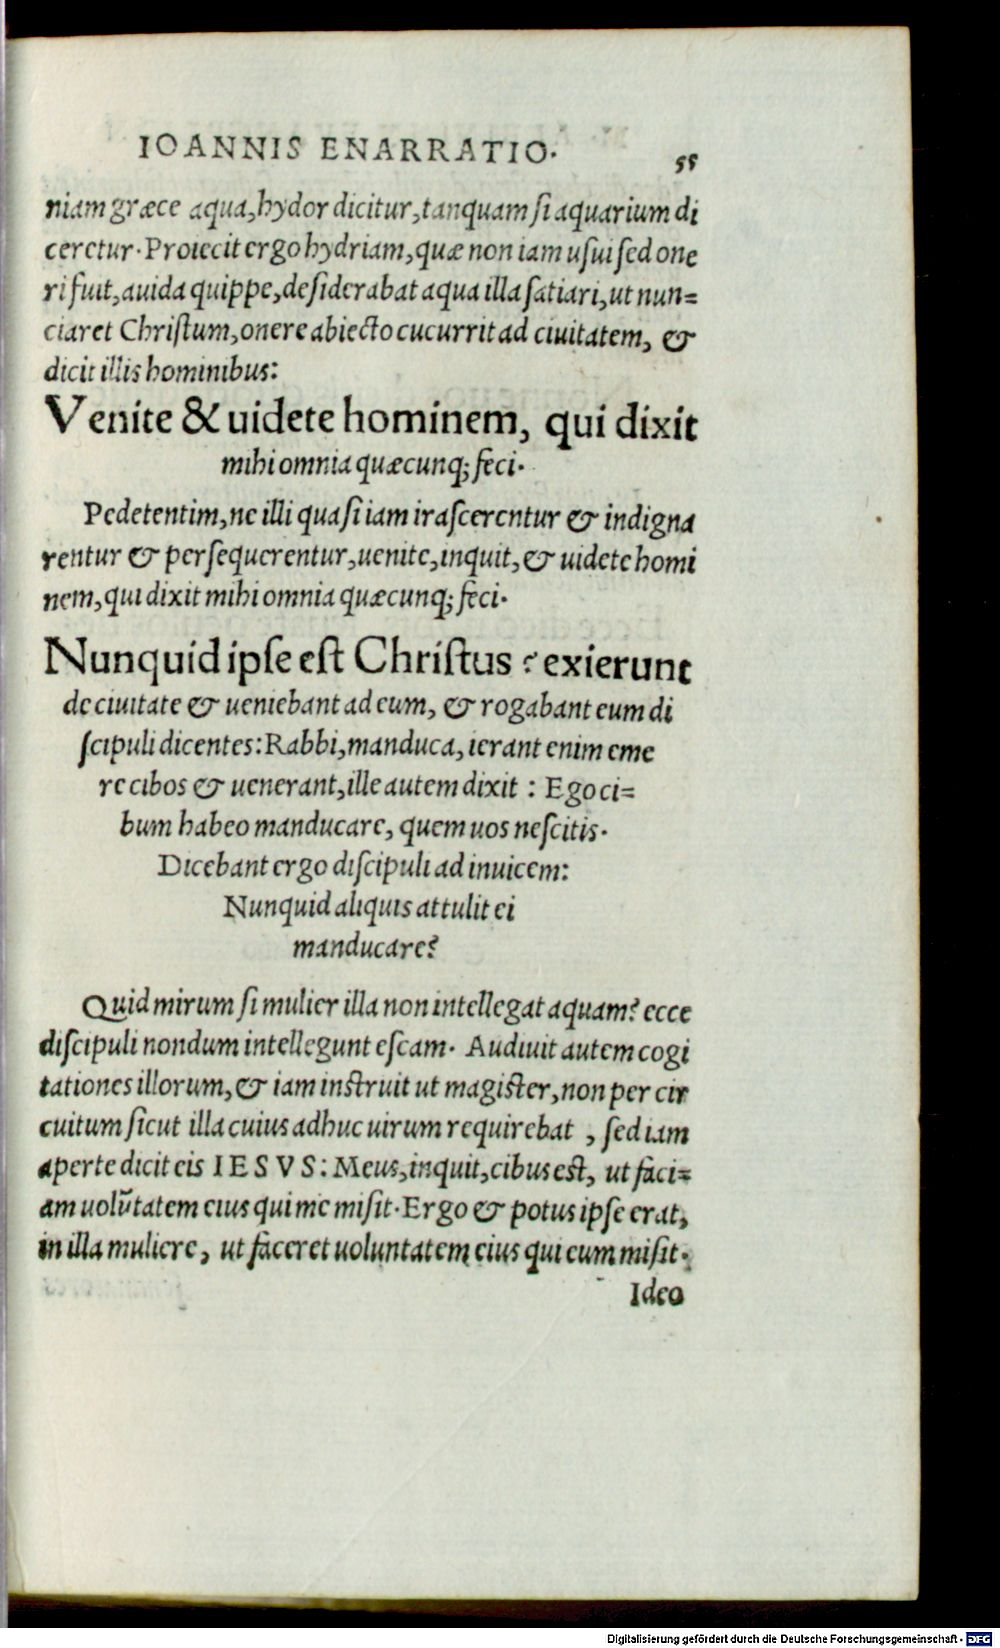 IOANNIS ENARRATIO. 55
niam græce aqua, hydor dicitur, tanquam si aquarium di
ceretur. Proiecit ergo hydriam, quæ non iam usui sed one
ri fuit, auida quippe, desiderabat aqua illa satiari, ut nun=
ciaret Christum, onere abiecto cucurrit ad ciuitatem, &
dicit illis hominibus:
Venite & uidete hominem, qui dixit
mihi omnia quæcunq; feci.
Pedetentim, ne illi quasi iam irascerentur & indigna
rentur & persequerentur, uenite, inquit, & uidete homi
nem, qui dixit mihi omnia quæcunq; feci.
Nunquid ipse est Christus? exierunt
de ciuitate & ueniebant ad eum, & rogabant eum di
scipuli dicentes: Rabbi, manduca, ierant enim eme
re cibos & uenerant, ille autem dixit : Ego ci=
bum habeo manducare, quem uos nescitis.
Dicebant ergo discipuli ad inuicem:
Nunquid aliquis attulit ei
manducare?
Quid mirum si mulier illa non intellegat aquam? ecce
discipuli nondum intellegunt escam. Audiuit autem cogi
tationes illorum, & iam instruit ut magister, non per cir
cuitum sicut illa cuius adhuc uirum requirebat , sed iam
aperte dicit eis IESVS: Meus, inquit, cibus est, ut faci=
am uolūtatem eius qui me misit. Ergo & potus ipse erat,
in illa muliere, ut faceret uoluntatem eius qui eum misit.
Ideo
Digitalisierung gefördert durch die Deutsche Forschungsgemeinschaft - DFG